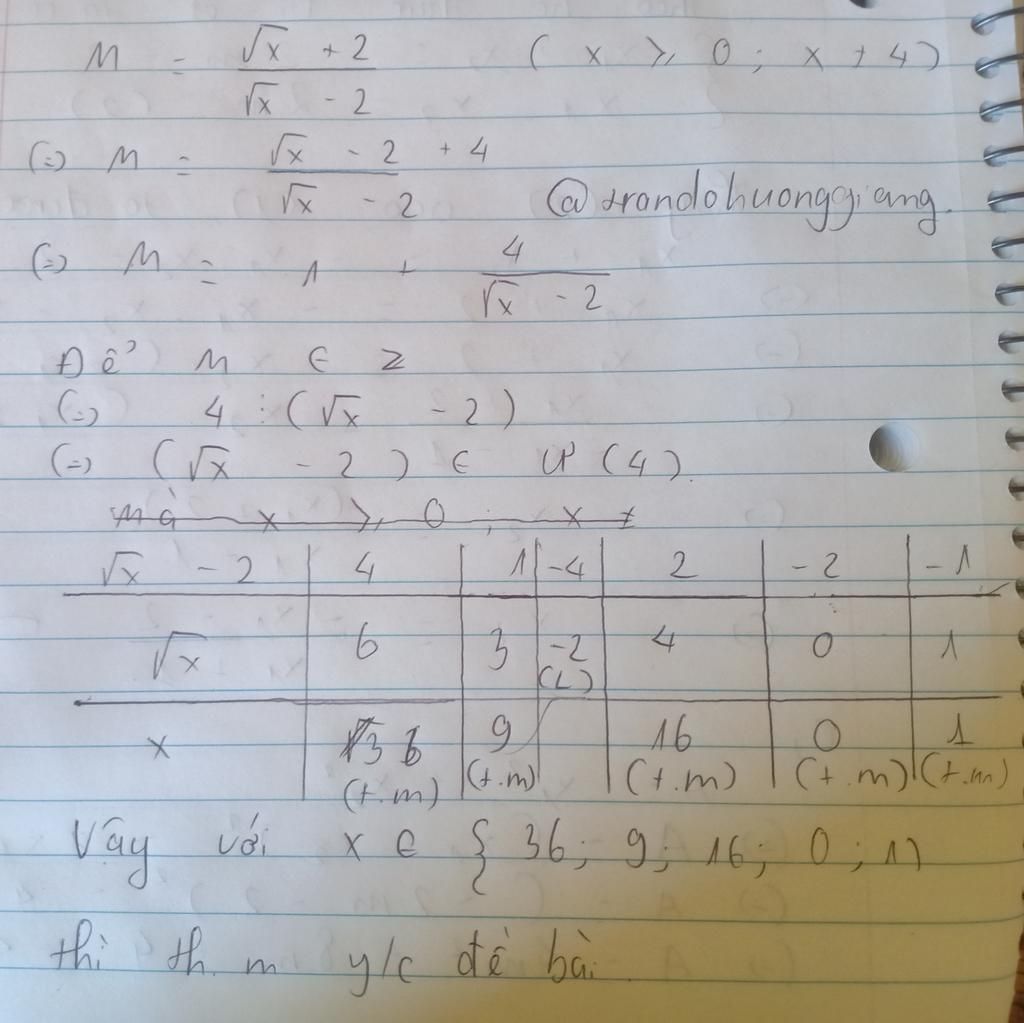 M = (√x + 2)/(√x - 2) ( x ≥ 0 ; x ≠ 4 )
(=) M = (√x - 2 + 4)/(√x - 2)
@trandohuonggiang.
(=) M = 1 + 4/(√x - 2)
Để M ∈ Z
(=) 4 ⋮ (√x - 2)
(=) (√x - 2) ∈ Ư (4).
mà x ≥ 0 ; x ≠
√x - 2 | 4 | 1 | -4 | 2 | -2 | -1
√x | 6 | 3 | -2 (L) | 4 | 0 | 1
x | 36 (t.m) | 9 (t.m) | | 16 (t.m) | 0 (t.m) | 1 (t.m)
Vậy với x ∈ { 36; 9; 16; 0; 1}
thì th. m y/c đề bài.